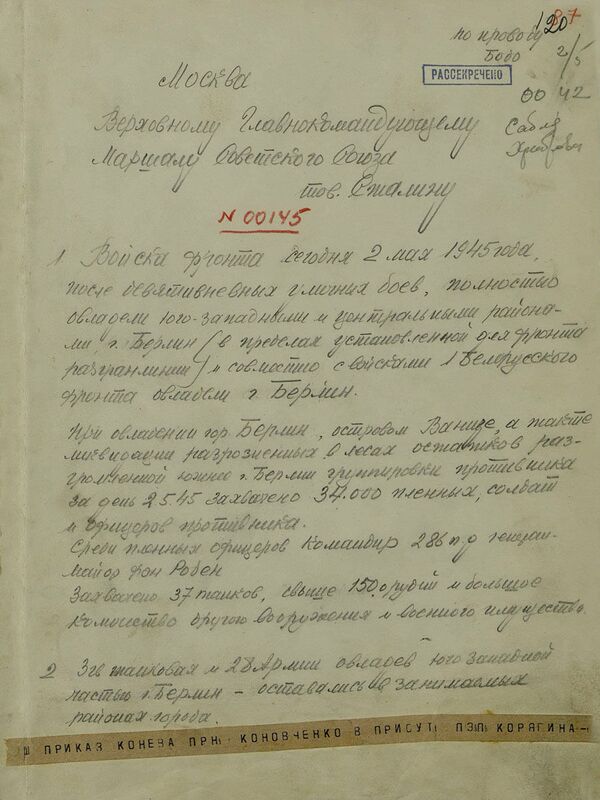 120
87
по проводу
Бодо
2/5
РАССЕКРЕЧЕНО
00 42
Москва
Верховному Главнокомандующему
Маршалу Советского Союза
тов. Сталину
N 00145
1 Войска фронта сегодня 2 мая 1945 года,
после девятидневных уличных боев, полностью
овладели юго-западными и центральными района-
ми г. Берлин (в пределах установленной для фронта
разгранлинии) и совместно с войсками 1 Белорусского
фронта овладели г. Берлин.
При овладении гор. Берлин, островом Ванзее, а также
ликвидации в лесах остатков раз-
громленной южнее г. Берлин группировки противника
за день 2.5.45 захвачено 34.000 пленных, солдат
и офицеров противника.
Среди пленных офицеров Командир 286 п.д генерал-
майор фон Робен
Захвачено 37 танков, свыше 150 орудий и большое
количество другого вооружения и военного имущества.
2 3 гв танковая и 28 Армии овладев юго западной
частью г. Берлин – оставались в занимаемых
районах города.
ПРИКАЗ КОНЕВА ПРН: КОНОВЧЕНКО В ПРИСУТ: ПЭП КОРЯГИНА-